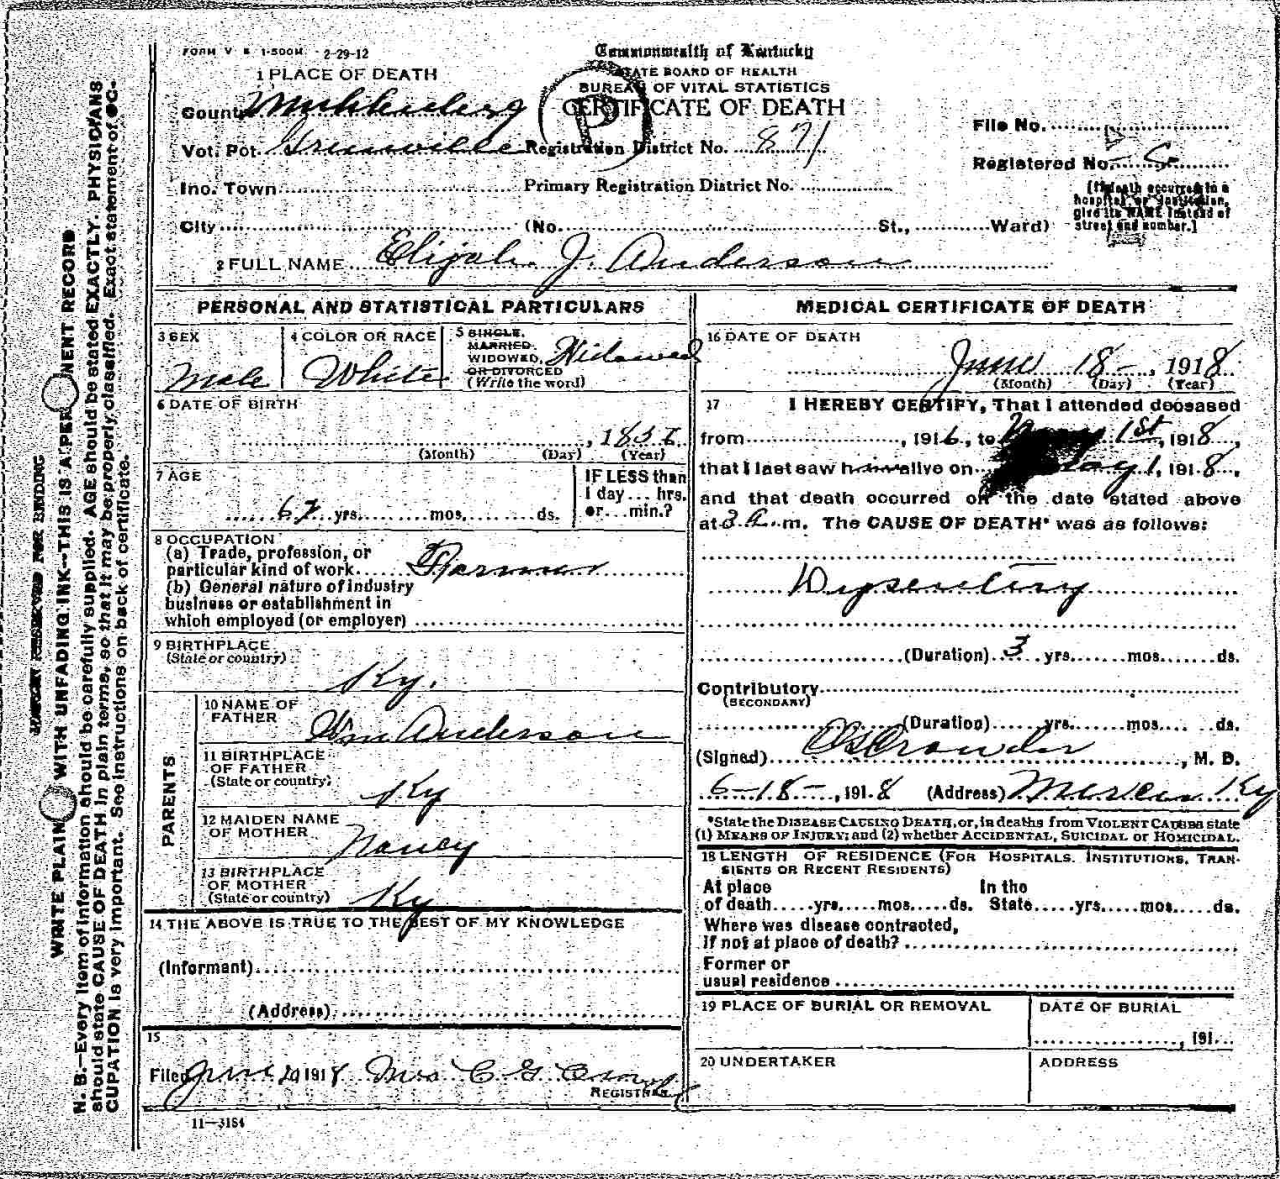 FORM V S 1-500M 2-29-12
Commonwealth of Kentucky
STATE BOARD OF HEALTH
BUREAU OF VITAL STATISTICS
CERTIFICATE OF DEATH
P
1 PLACE OF DEATH
County Muhlenberg
Vot. Pct. Greenville Registration District No. 871
File No.
Registered No.
Inc. Town Primary Registration District No.
City (No. St., Ward)
[If death occurred in a
hospital or institution,
give its NAME instead of
street and number.]
2 FULL NAME Elijah J. Anderson
PERSONAL AND STATISTICAL PARTICULARS
3 SEX
Male
4 COLOR OR RACE
White
5 SINGLE,
MARRIED,
WIDOWED,
OR DIVORCED
(Write the word)
Widowed
6 DATE OF BIRTH
, 185
(Month) (Day) (Year)
7 AGE
yrs. mos. ds.
IF LESS than
1 day... hrs.
or...min.?
8 OCCUPATION
(a) Trade, profession, or
particular kind of work Farmer
(b) General nature of industry
business or establishment in
which employed (or employer)
9 BIRTHPLACE
(State or country)
Ky.
PARENTS
10 NAME OF
FATHER
Wm Anderson
11 BIRTHPLACE
OF FATHER
(State or country)
Ky
12 MAIDEN NAME
OF MOTHER
Nancy
13 BIRTHPLACE
OF MOTHER
(State or country)
Ky
14 THE ABOVE IS TRUE TO THE BEST OF MY KNOWLEDGE
(Informant)
(Address)
15
Filed June 20 1918 Mrs C G
REGISTRAR
11-3184
MEDICAL CERTIFICATE OF DEATH
16 DATE OF DEATH
June 18 - , 1918
(Month) (Day) (Year)
17 I HEREBY CERTIFY, That I attended deceased
from , 1916, to 1st, 1918,
that I last saw him alive on May 1, 1918,
and that death occurred on the date stated above
at 3 a. m. The CAUSE OF DEATH* was as follows:
Dysentery
(Duration) 3 yrs. mos. ds.
Contributory
(SECONDARY)
(Duration) yrs. mos. ds.
(Signed) Crowder, M. D.
6-18-, 1918 (Address) Mercer Ky
*State the DISEASE CAUSING DEATH, or, in deaths from VIOLENT CAUSES state
(1) MEANS OF INJURY; and (2) whether ACCIDENTAL, SUICIDAL or HOMICIDAL.
18 LENGTH OF RESIDENCE (FOR HOSPITALS, INSTITUTIONS, TRAN-
SIENTS OR RECENT RESIDENTS)
At place In the
of death yrs. mos. ds. State yrs. mos. ds.
Where was disease contracted,
If not at place of death?
Former or
usual residence
19 PLACE OF BURIAL OR REMOVAL
DATE OF BURIAL
, 191
20 UNDERTAKER
ADDRESS
MARGIN RESERVED FOR BINDING
WRITE PLAINLY WITH UNFADING INK--THIS IS A PERMANENT RECORD
N. B.—Every item of information should be carefully supplied. AGE should be stated EXACTLY. PHYSICIANS
should state CAUSE OF DEATH in plain terms, so that it may be properly classified. Exact statement of OC-
CUPATION is very important. See instructions on back of certificate.